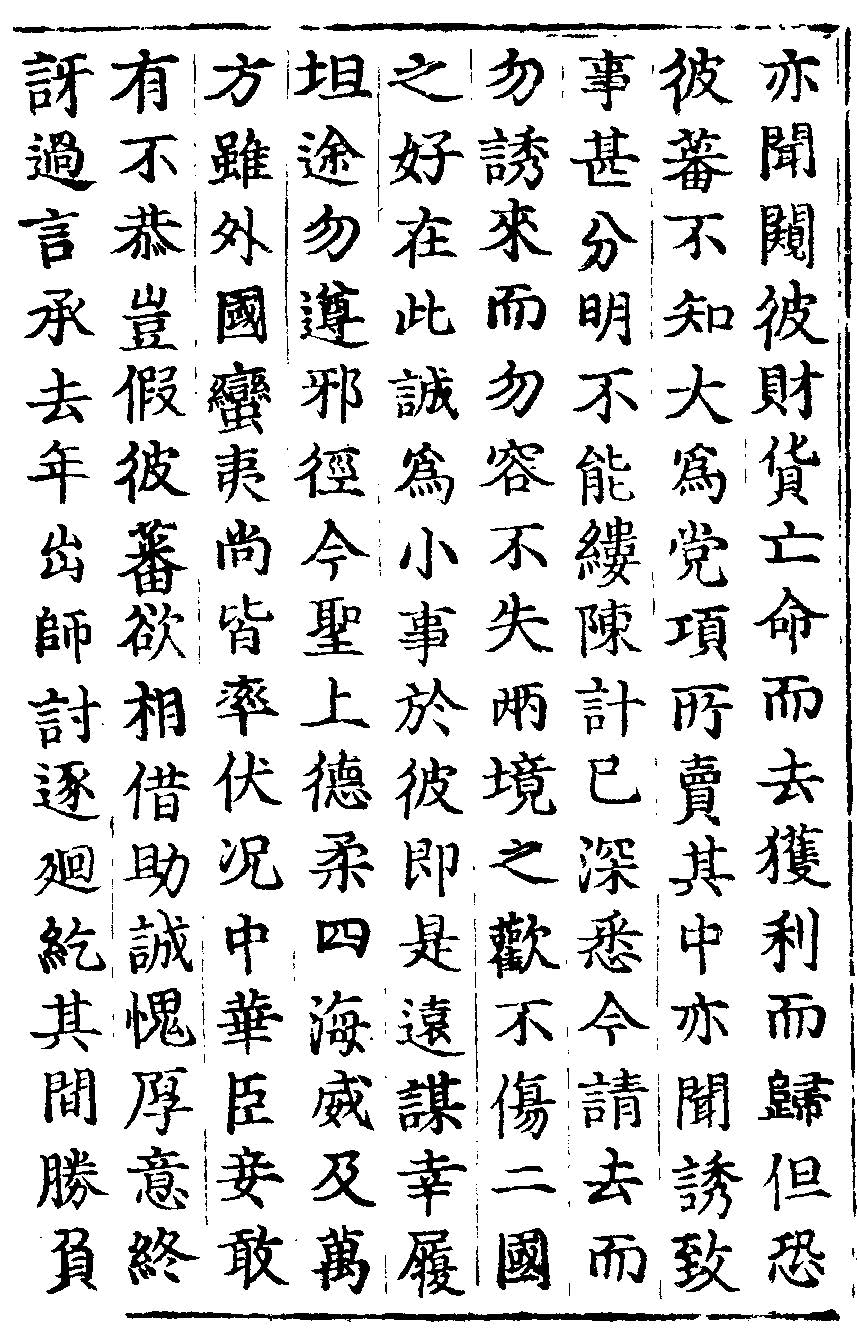 亦聞闚彼財貨亡命而去獲利而歸但恐
彼蕃不知大爲党項所賣其中亦聞誘致
事甚分明不能縷陳計已深悉今請去而
勿誘來而勿容不失兩境之歡不傷二國
之好在此誠爲小事於彼即是遠謀幸履
坦途勿遵邪徑今聖上德柔四海威及萬
方雖外國蠻夷尚皆率伏況中華臣妾敢
有不恭豈假彼蕃欲相借助誠愧厚意終
訝過言承去年出師討逐迴紇其間勝負